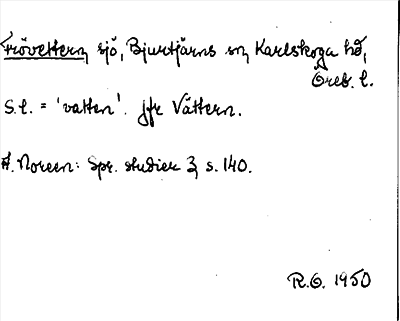 Frövettern, sjö, Bjurtjärns sn, Karlskoga hd,
Öreb. l.
S.l. = 'vatten'. Jfr Vättern.
A. Noreen: Spr. studier 3, s. 140.
R.O. 1950